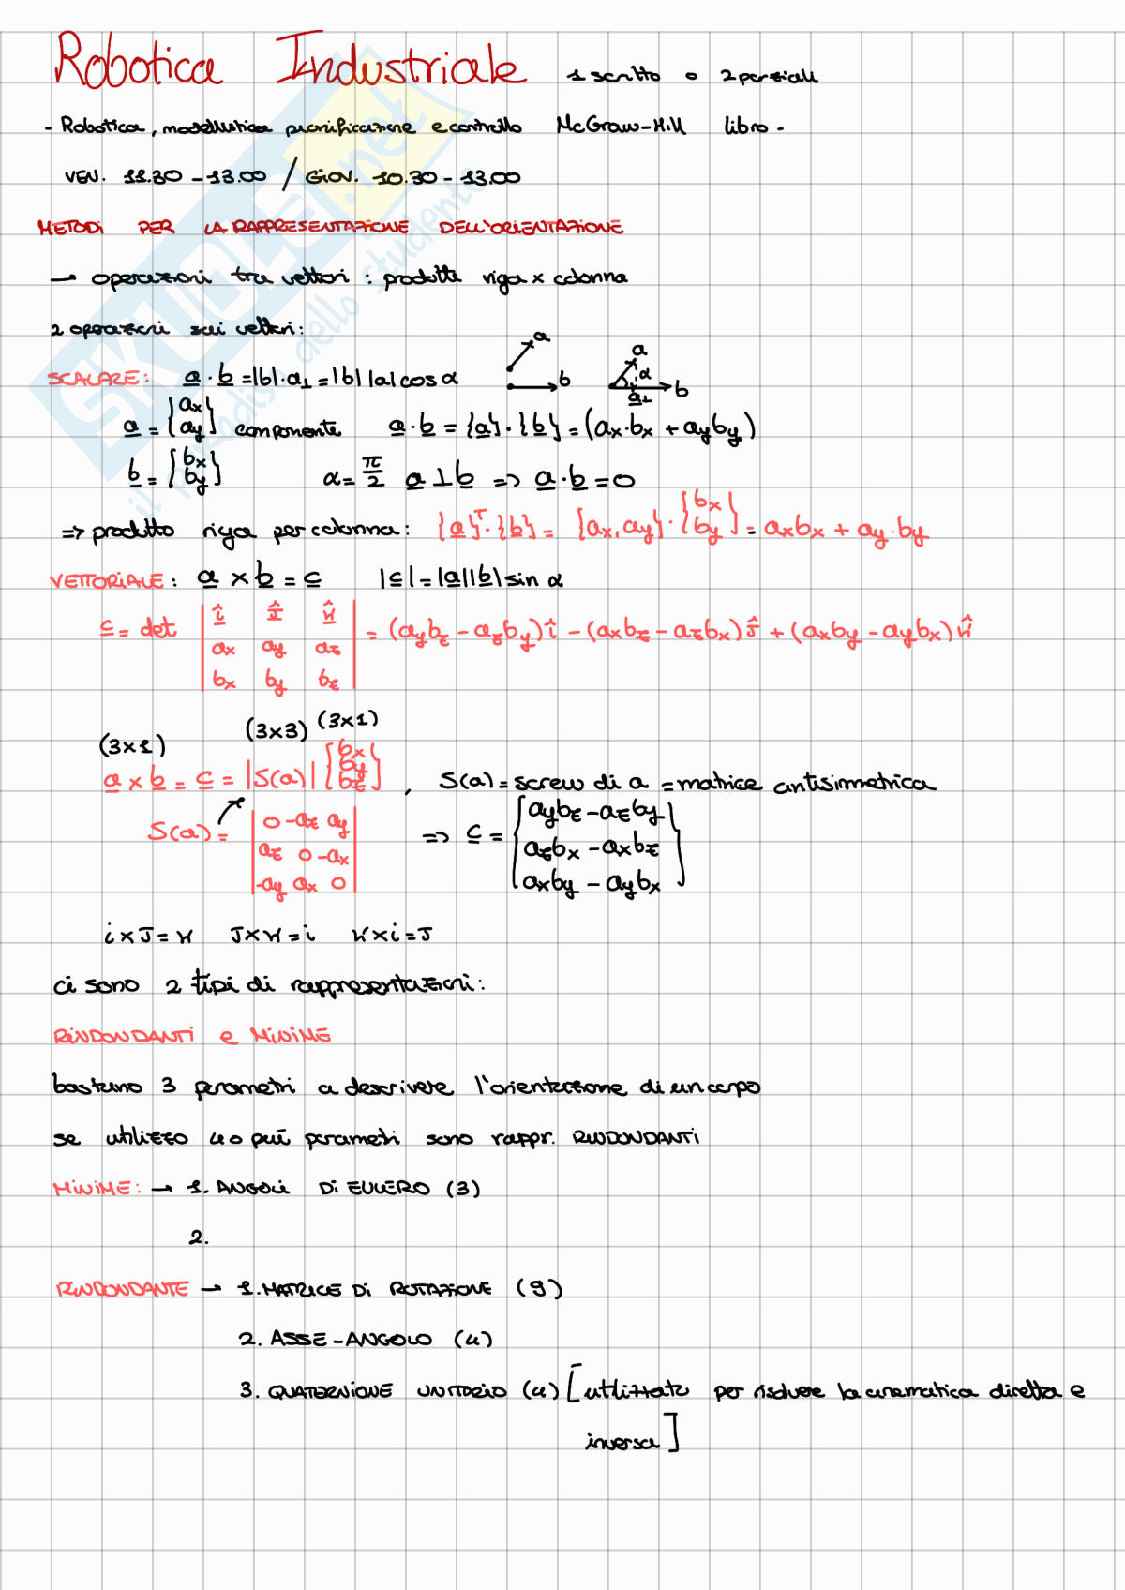 Robotica Industriale 1 scritto o 2 parziali
- Robotica, modellistica pianificazione e controllo McGraw-Hill libro -
VEN. 11.30 - 13.00 / GIOV. 10.30 - 13.00
METODI PER LA RAPPRESENTAZIONE DELL'ORIENTAZIONE
→ operazioni tra vettori : prodotto riga x colonna
2 operazioni sui vettori:
SCALARE: a · b = |b| · a⊥ = |b| |a| cos α
a b a α a⊥ b
a = {ax ay} componente a · b = {a} · {b} = (ax · bx + ay by)
b = {bx by} α = π/2 a ⊥ b => a · b = 0
=> prodotto riga per colonna: {a}ᵀ · {b} = {ax, ay} · {bx by} = axbx + ay by
VETTORIALE: a × b = c |c| = |a||b| sin α
c = det | î ĵ k̂ | = (aybz - azby) î - (axbz - azbx) ĵ + (axby - aybx) k̂
ax ay az
bx by bz
(3x1) (3x3) (3x1)
a × b = c = |S(a)| {bx by bz} , S(a) = screw di a = matrice antisimmetrica
S(a) = | 0 -az ay | => c = { aybz - azby
az 0 -ax azbx - axbz
-ay ax 0 axby - aybx }
i × J = k J × k = i k × i = J
ci sono 2 tipi di rappresentazioni:
RINDONDANTI e MINIME
bastano 3 parametri a descrivere l'orientazione di un corpo
se utilizzo 4 o più parametri sono rappr. RINDONDANTI
MINIME: → 1. ANGOLI DI EULERO (3)
2.
RINDONDANTE → 1. MATRICE DI ROTAZIONE (9)
2. ASSE-ANGOLO (4)
3. QUATERNIONE UNITARIO (4) [utilizzato per risolvere la cinematica diretta e
inversa]
SKUOLA.net
il paradiso dello studente